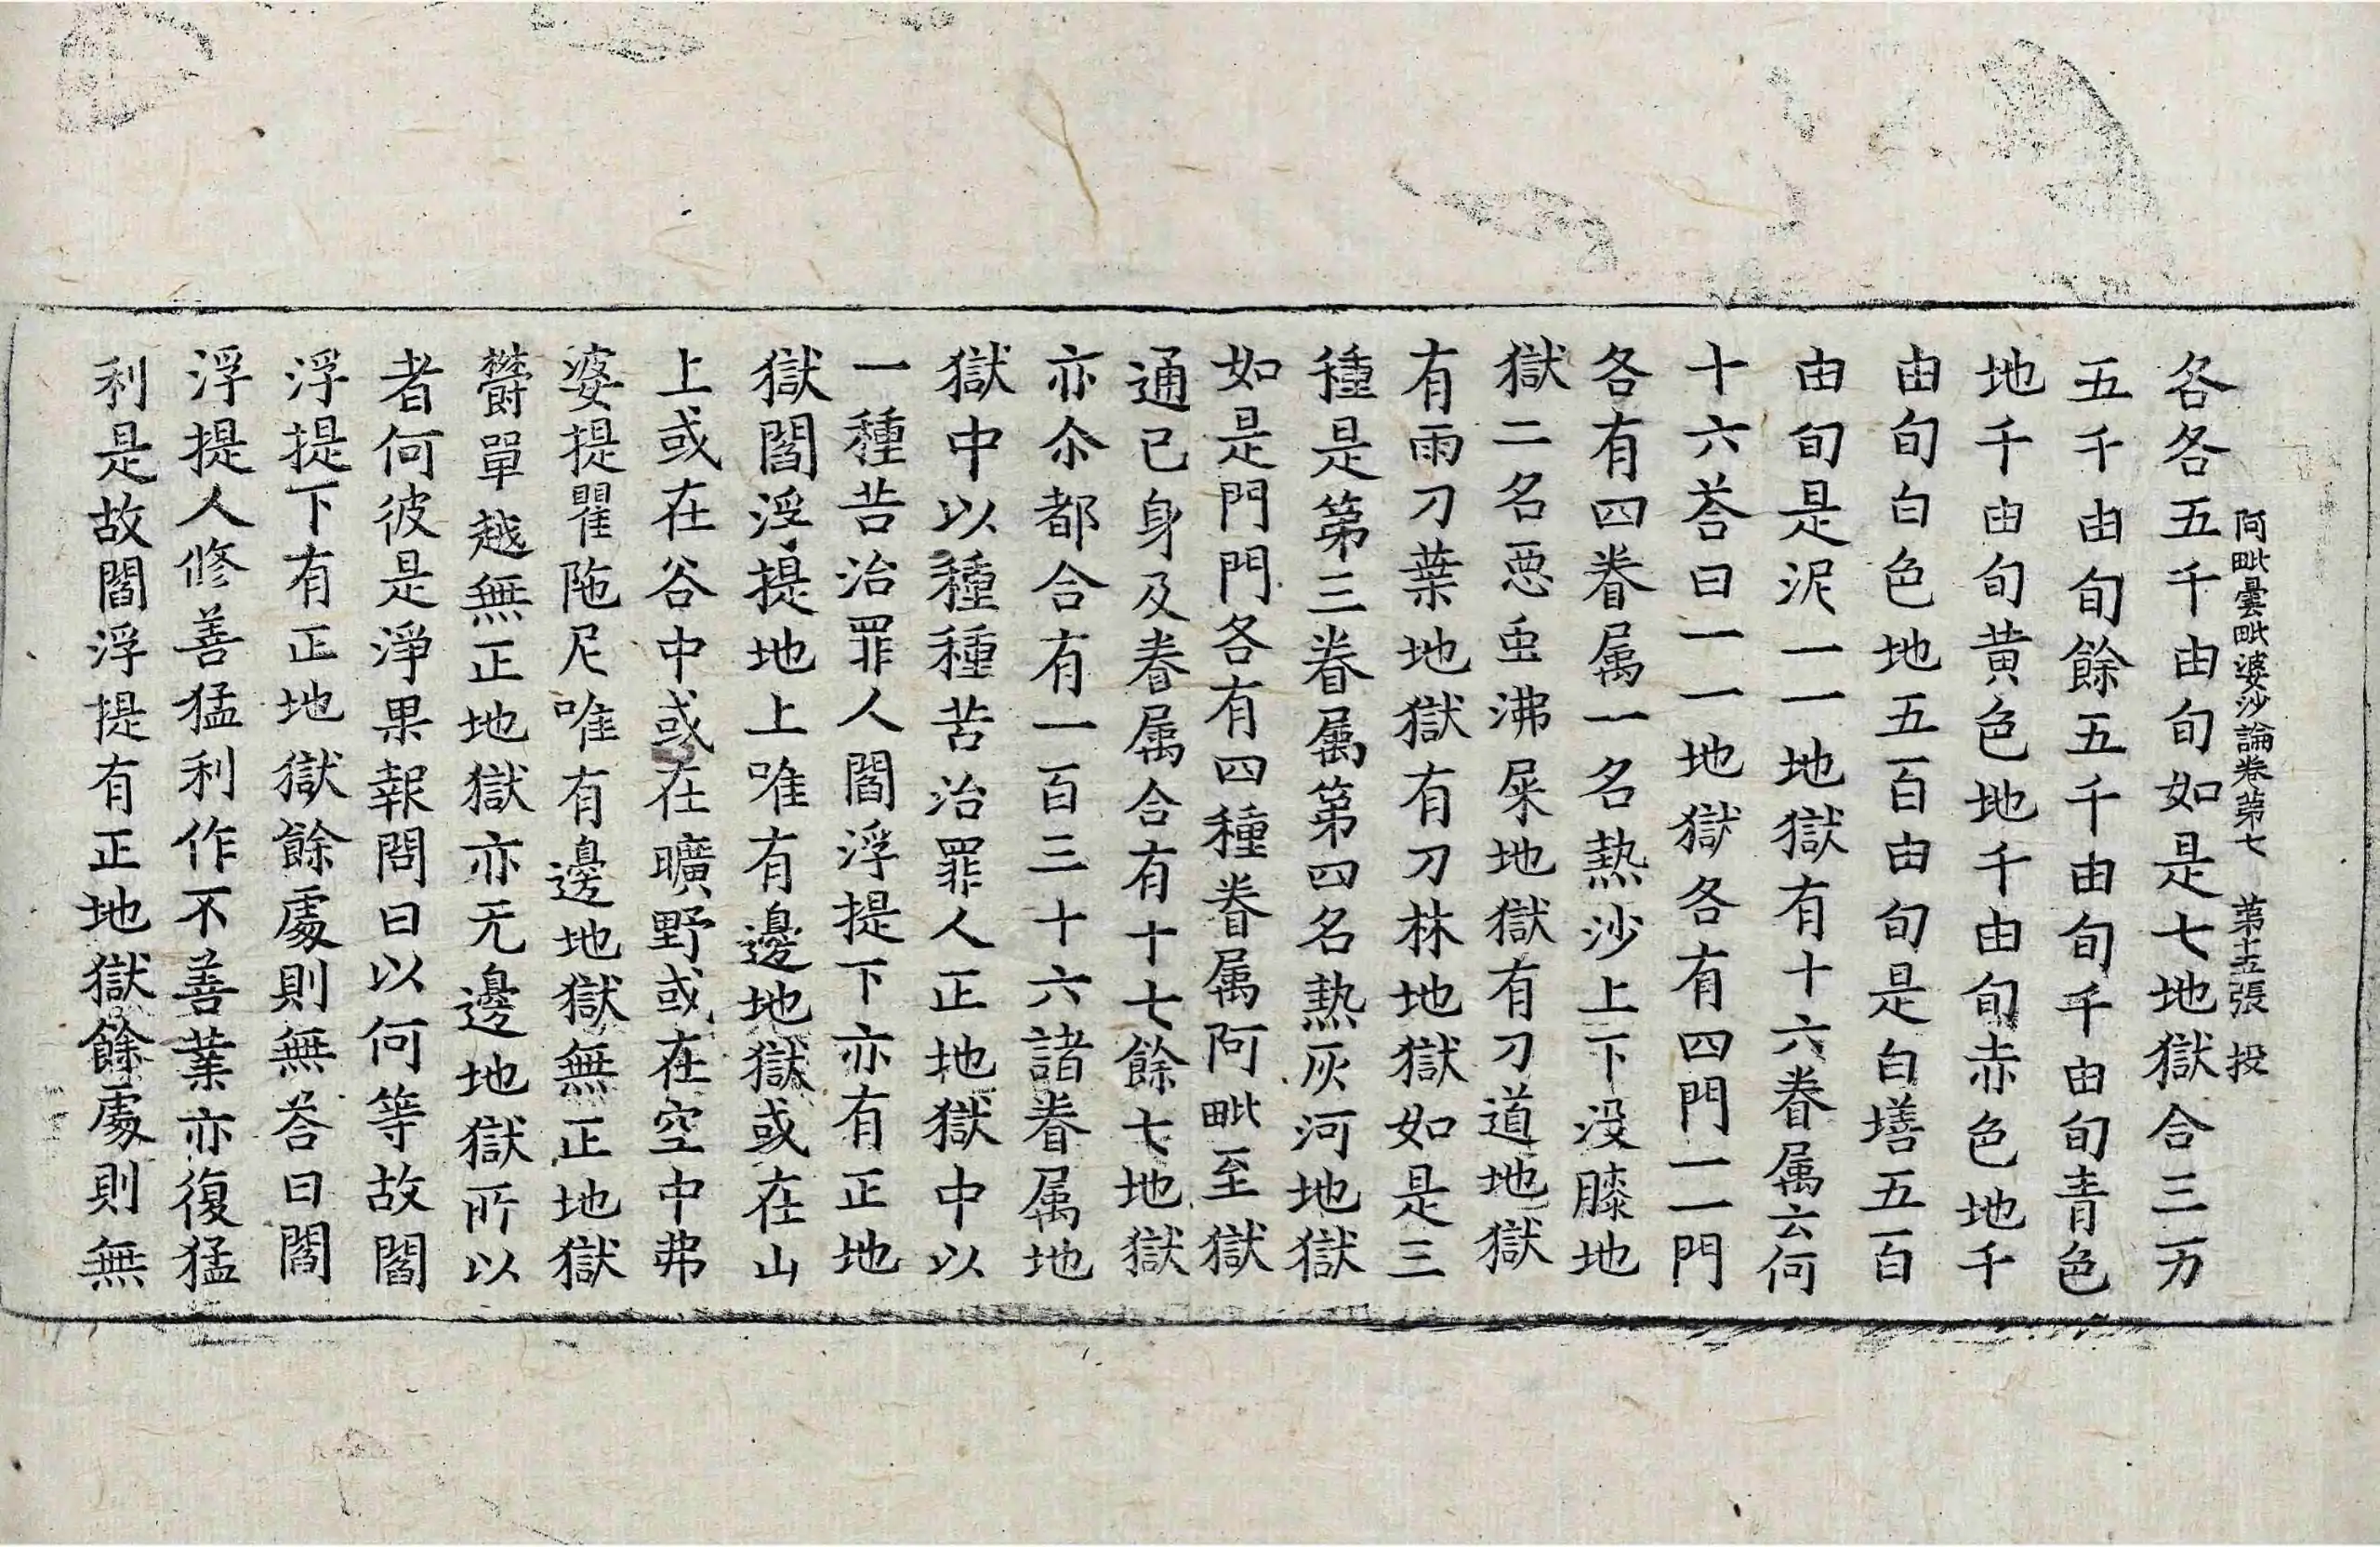 阿毗曇毗婆沙論卷第七　第十五張　投
各各五千由旬如是七地獄合三万
五千由旬餘五千由旬千由旬青色
地千由旬黄色地千由旬赤色地千
由旬白色地五百由旬是白墡五百
由旬是泥一一地獄有十六眷属云何
十六荅曰一一地獄各有四門一一門
各有四眷属一名熱沙上下没膝地
獄二名惡虫沸屎地獄有刀道地獄
有雨刀葉地獄有刀林地獄如是三
種是第三眷属第四名熱灰河地獄
如是門門各有四種眷属阿毗至獄
通已身及眷属合有十七餘七地獄
亦尒都合有一百三十六諸眷属地
獄中以種種苦治罪人正地獄中以
一種苦治罪人閻浮提下亦有正地
獄閻浮提地上唯有邊地獄或在山
上或在谷中或在曠野或在空中弗
婆提瞿陁尼唯有邊地獄無正地獄
欝單越無正地獄亦无邊地獄所以
者何彼是淨果報問曰以何等故閻
浮提下有正地獄餘處則無荅曰閻
浮提人修善猛利作不善業亦復猛
利是故閻浮提有正地獄餘處則無